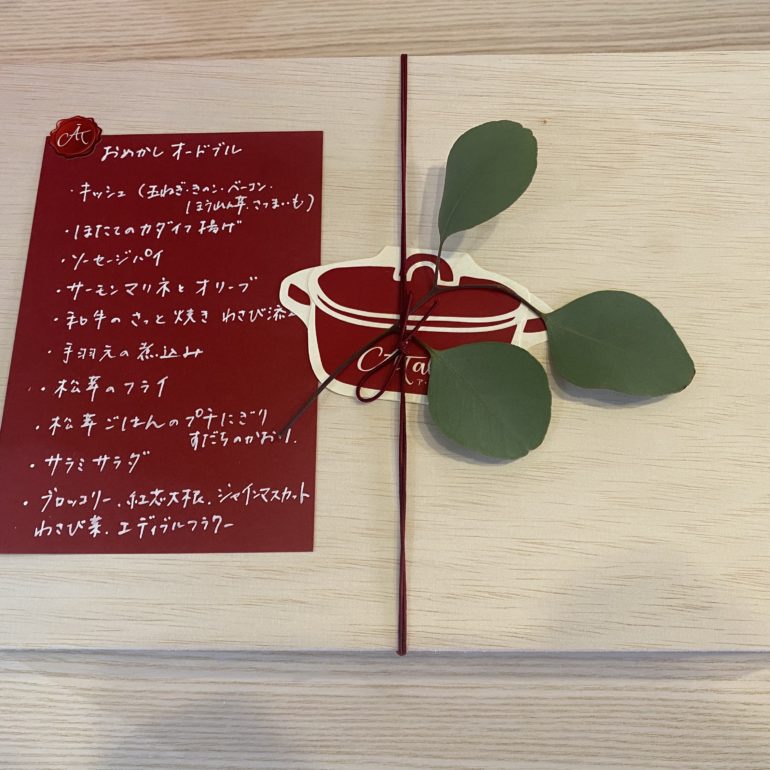 AT
おめかし オードブル
・キッシュ (玉ねぎ・きのこ・ベーコン・
ほうれん草、さつまいも)
・ほたてのカダイフ揚げ
・ソーセージパイ
・サーモンマリネと オリーブ
・和牛のさっと焼き わさび添
・手羽元の煮込み
・松茸のフライ
・松茸ごはんのプチにぎり
すだちのかおり.
・サラミサラダ
・ブロッコリー、紅芯大根、シャインマスカット
わさび菜、エディブルフラワー